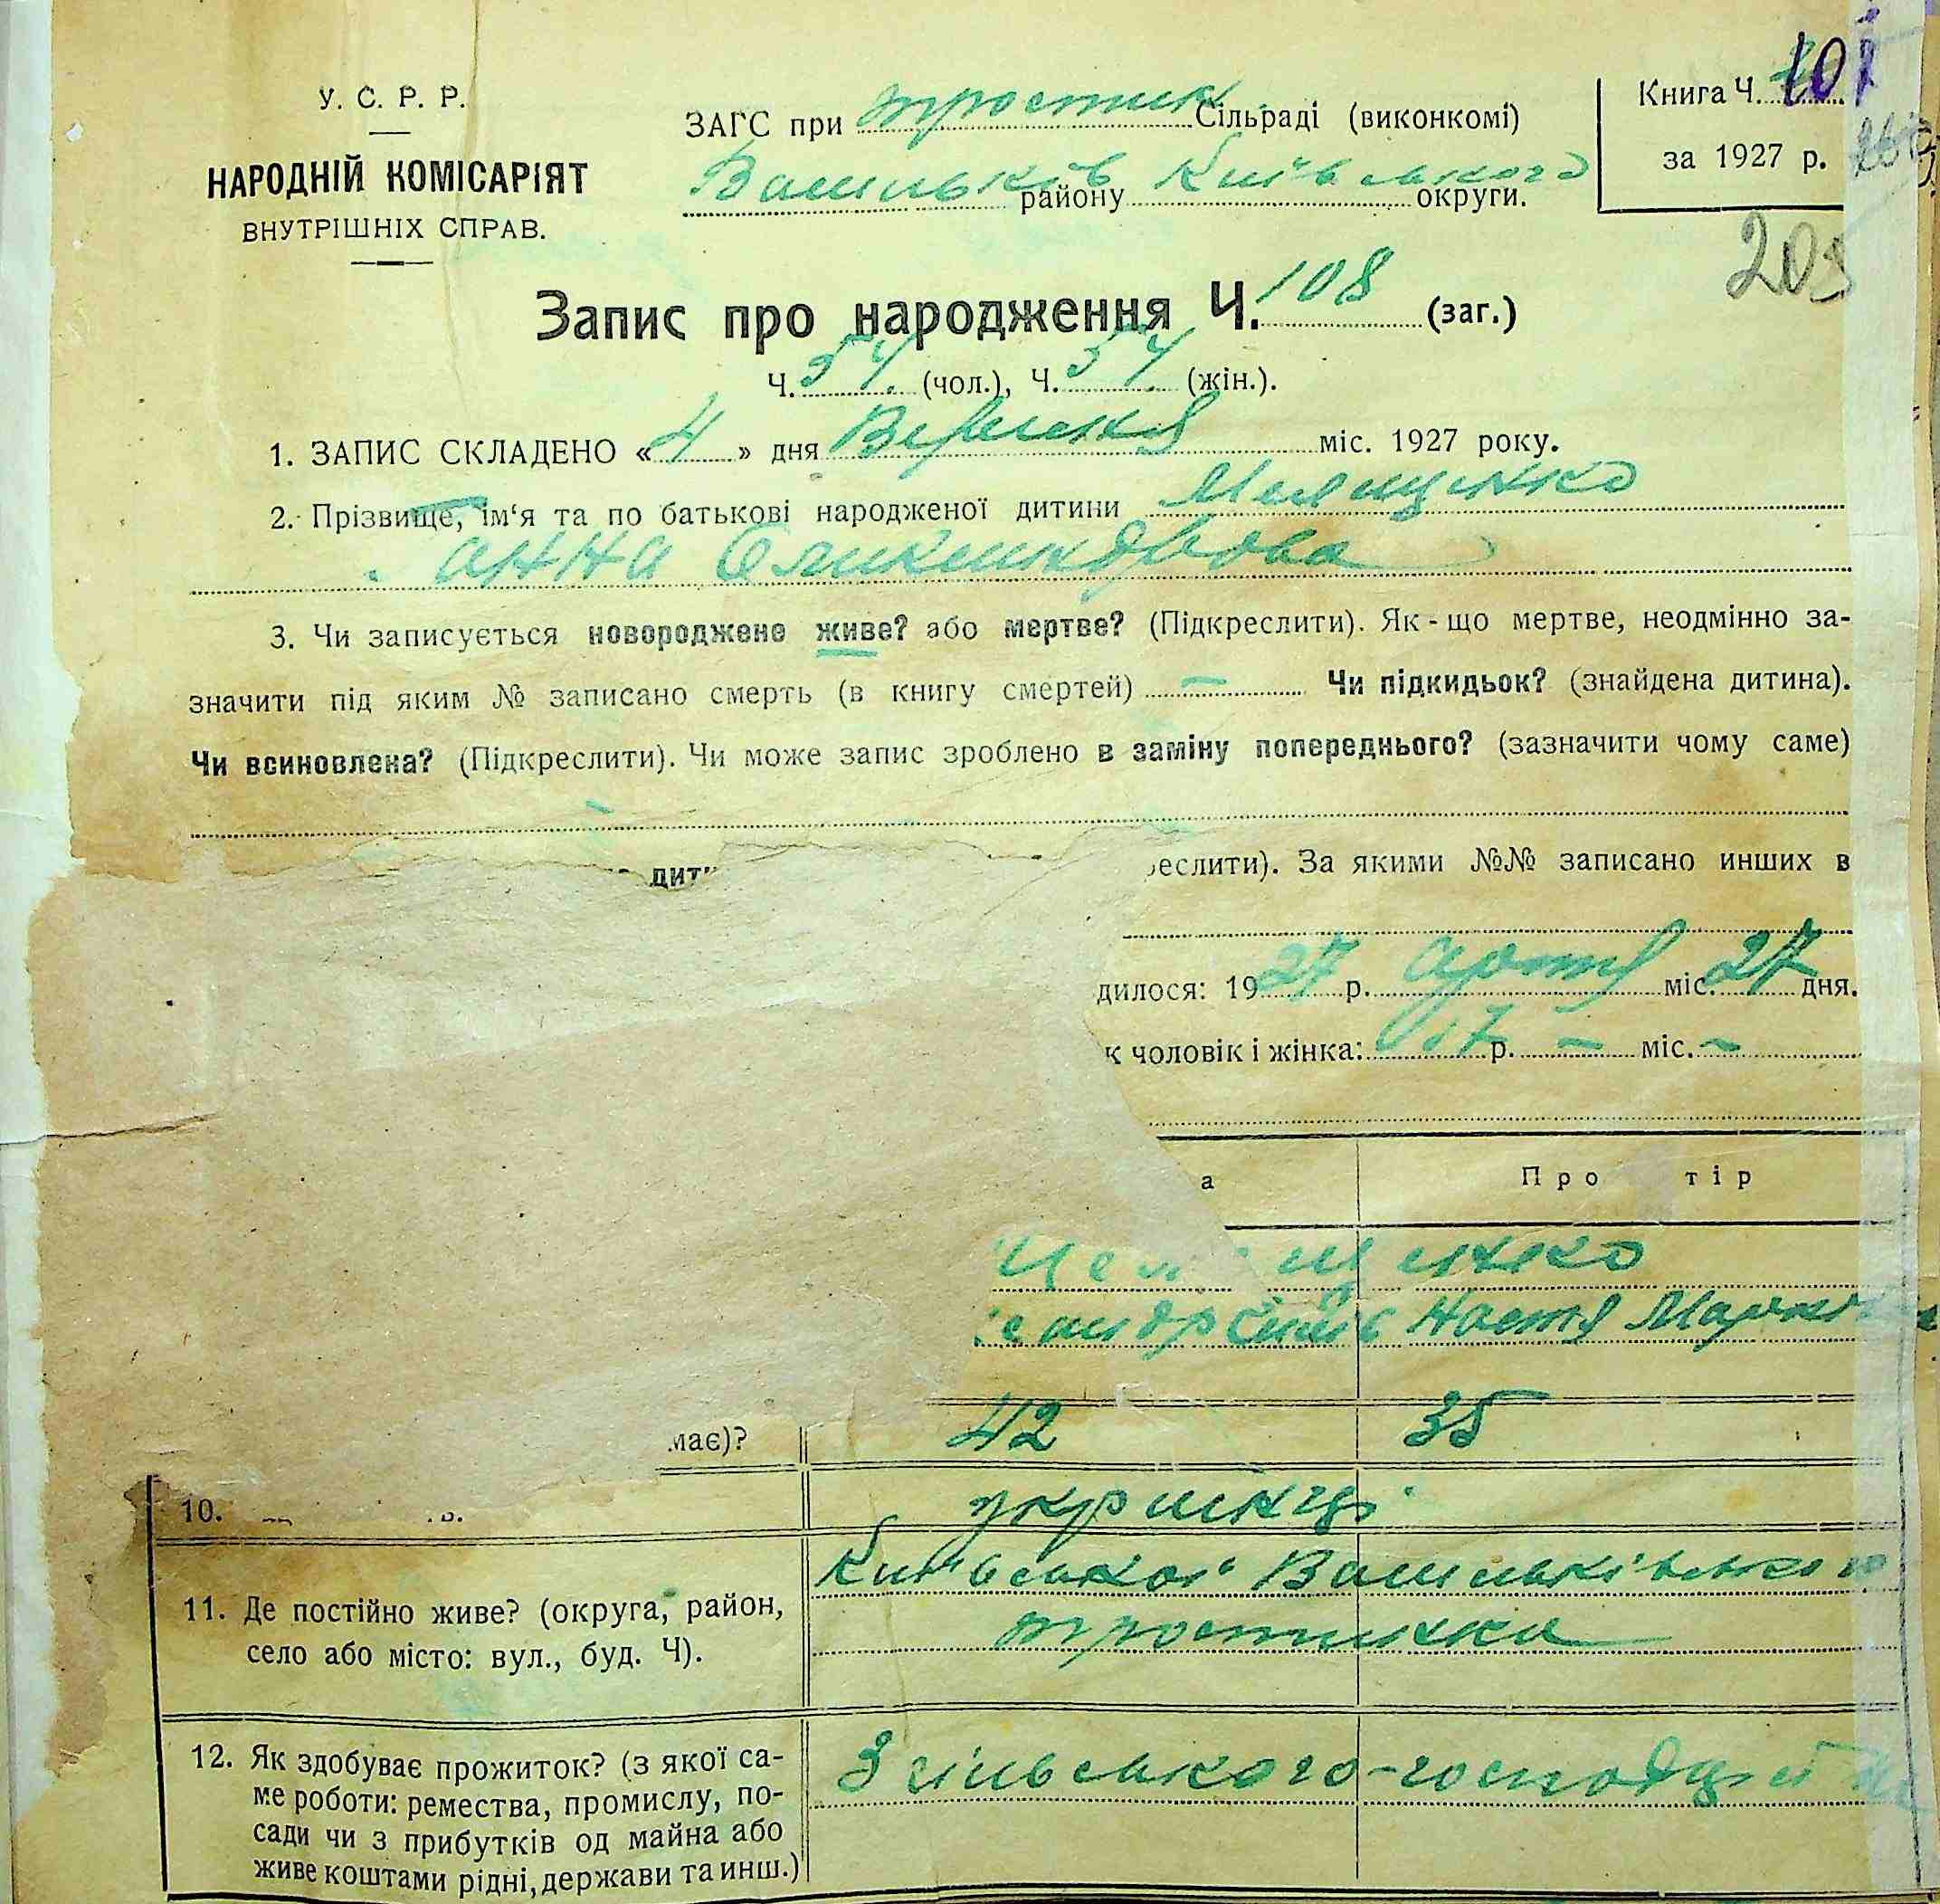 У. С. Р. Р.
НАРОДНІЙ КОМІСАРІЯТ
ВНУТРІШНІХ СПРАВ.
ЗАГС при тростик Сільраді (виконкомі)
Васильків району Київського округи.
Книга Ч. 101
за 1927 р.
Запис про народження Ч. 108 (заг.)
Ч. 54 (чол.), Ч. 54 (жін.).
1. ЗАПИС СКЛАДЕНО «4» дня Вересня міс. 1927 року.
2. Прізвище, ім‘я та по батькові народженої дитини
Анна Олександрова
3. Чи записується новороджене живе? або мертве? (Підкреслити). Як-що мертве, неодмінно за-
значити під яким № записано смерть (в книгу смертей) — Чи підкидьок? (знайдена дитина).
Чи всиновлена? (Підкреслити). Чи може запис зроблено в заміну попереднього? (зазначити чому саме)
дит еслити). За якими №№ записано инших в
дилося: 1927 р. міс. 27 дня.
к чоловік і жінка: 17 р. — міс. —
а Про тір
42 35
має)?
10. українці
11. Де постійно живе? (округа, район,
село або місто: вул., буд. Ч).
Київської Васильківського
тростинка
12. Як здобуває прожиток? (з якої са-
ме роботи: ремества, промислу, по-
сади чи з прибутків од майна або
живе коштами рідні, держави та инш.)
З сільського-господар